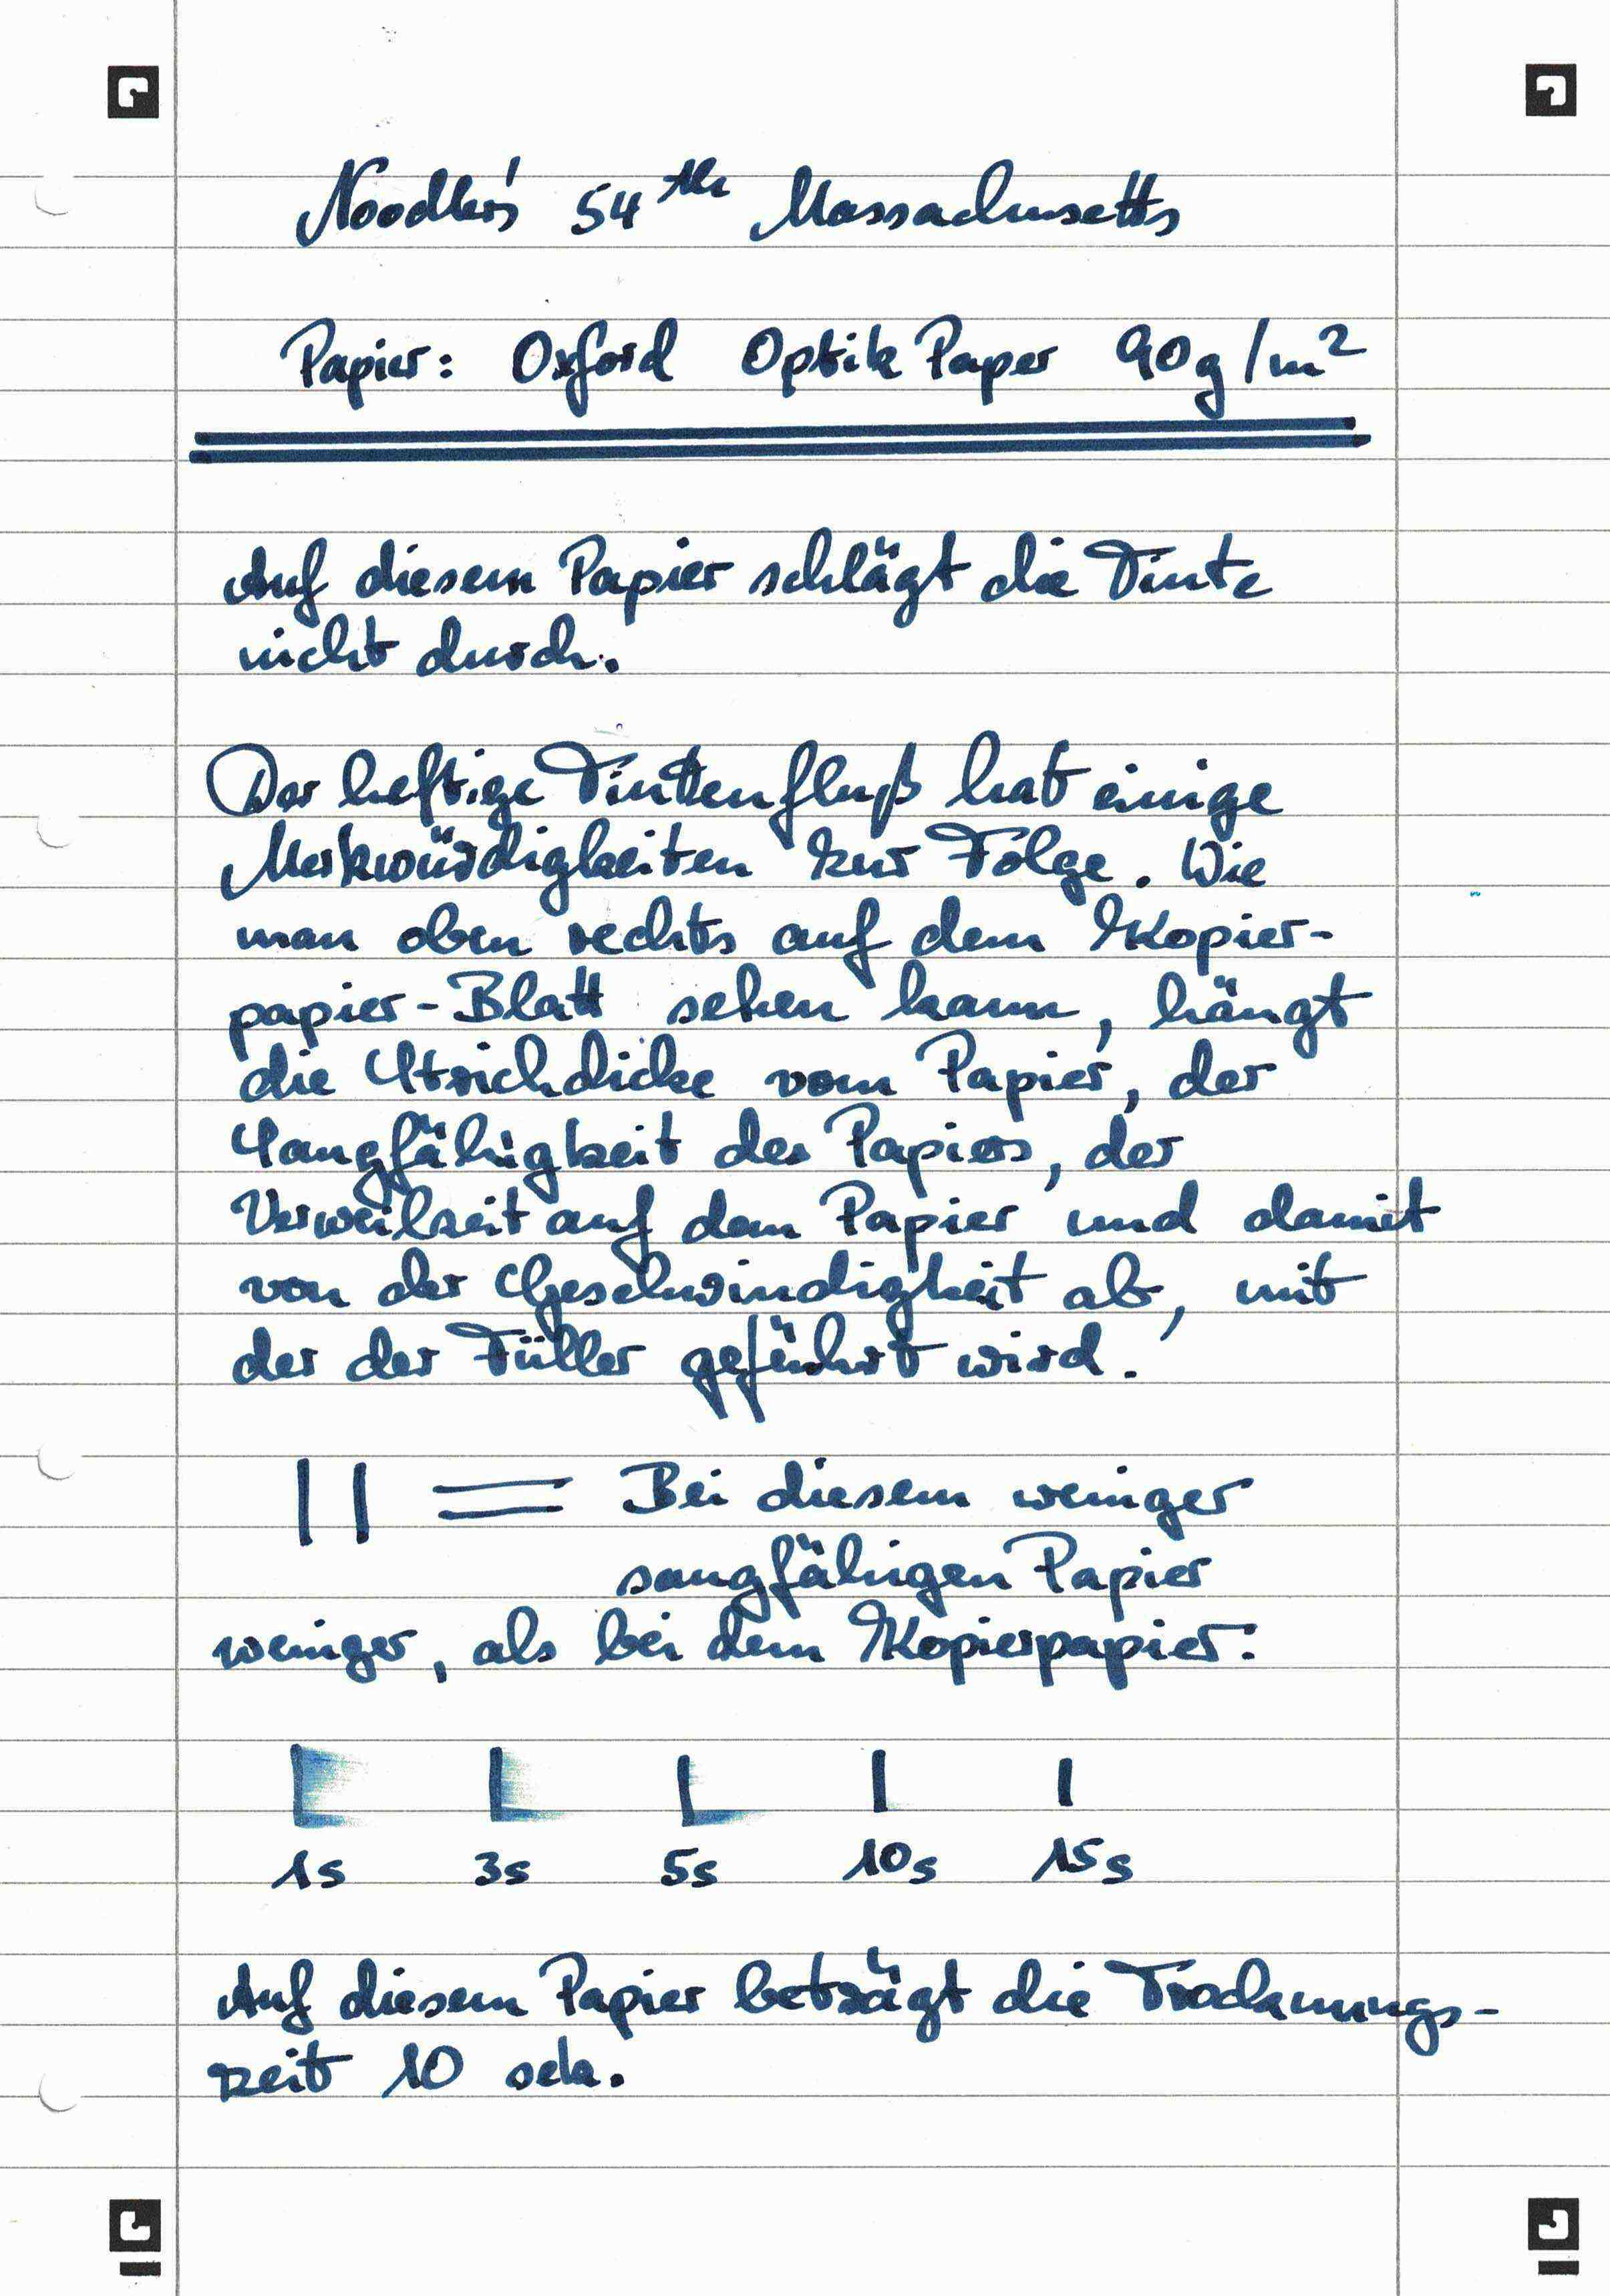 Noodler's 54th Massachusetts
Papier: Oxford Optik Paper 90g/m²
Auf diesem Papier schlägt die Tinte
nicht durch.
Der heftige Tintenfluß hat einige
Merkwürdigkeiten zur Folge. Wie
man oben rechts auf dem Kopier-
papier-Blatt sehen kann, hängt
die Strichdicke vom Papier, der
Saugfähigkeit des Papiers, der
Verweilzeit auf dem Papier und damit
von der Geschwindigkeit ab, mit
der der Füller geführt wird.
Bei diesem weniger
saugfähigen Papier
weniger, als bei dem Kopierpapier:
1s 3s 5s 10s 15s
Auf diesem Papier beträgt die Trocknungs-
zeit 10 sek.